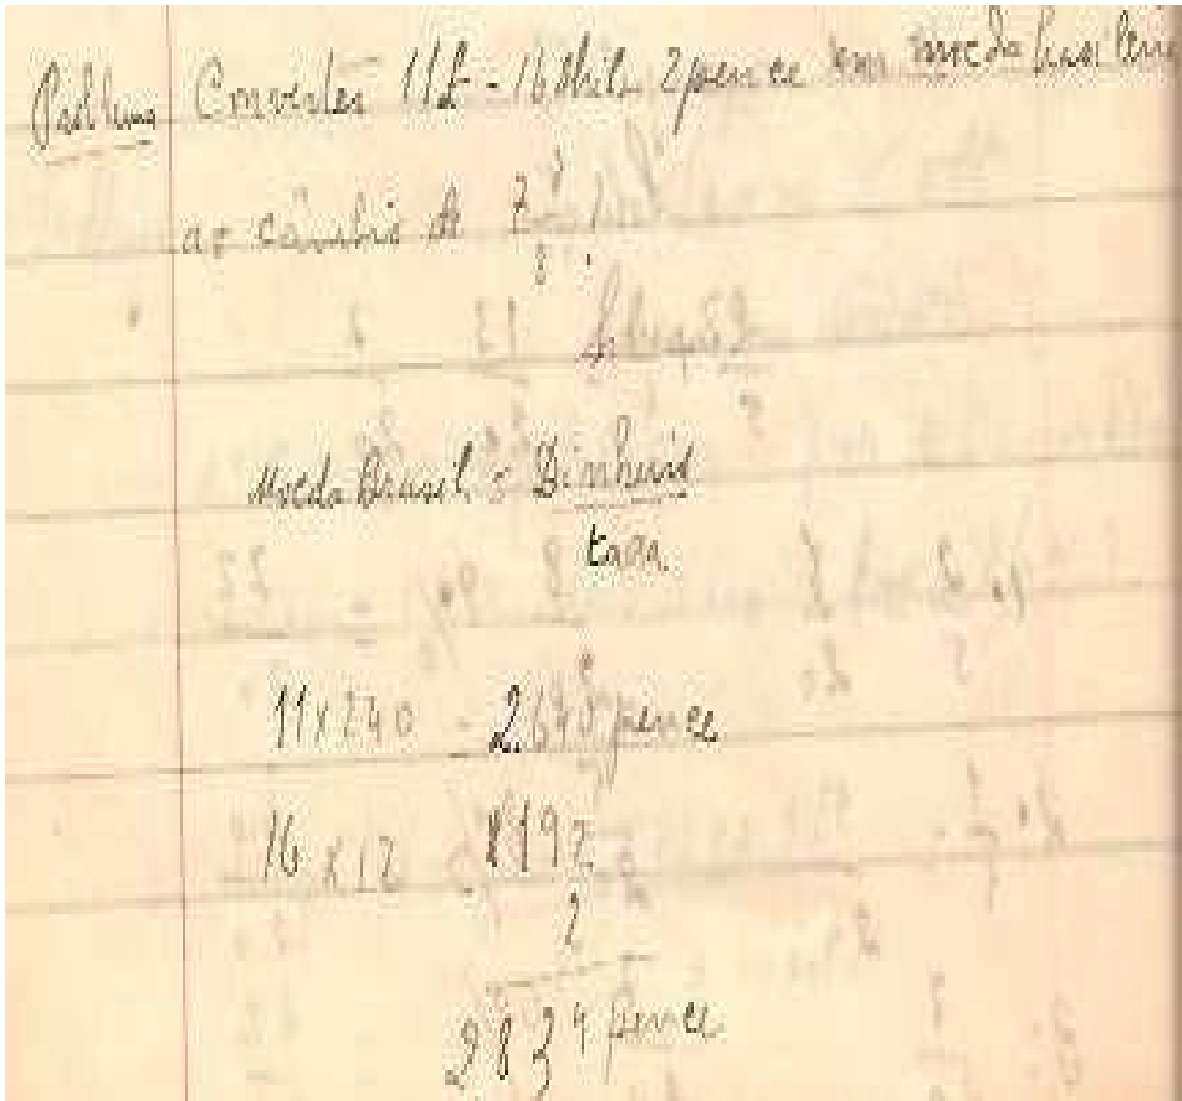 Problema Converter 11£ - 16 Shil. 2 pence em moeda brasileira
ao câmbio de 7
8
Solução
Moeda Brasil = Dinheiro
taxa
11 x 240 = 2640 pence
16 x 12 = 192
2
2834 pence